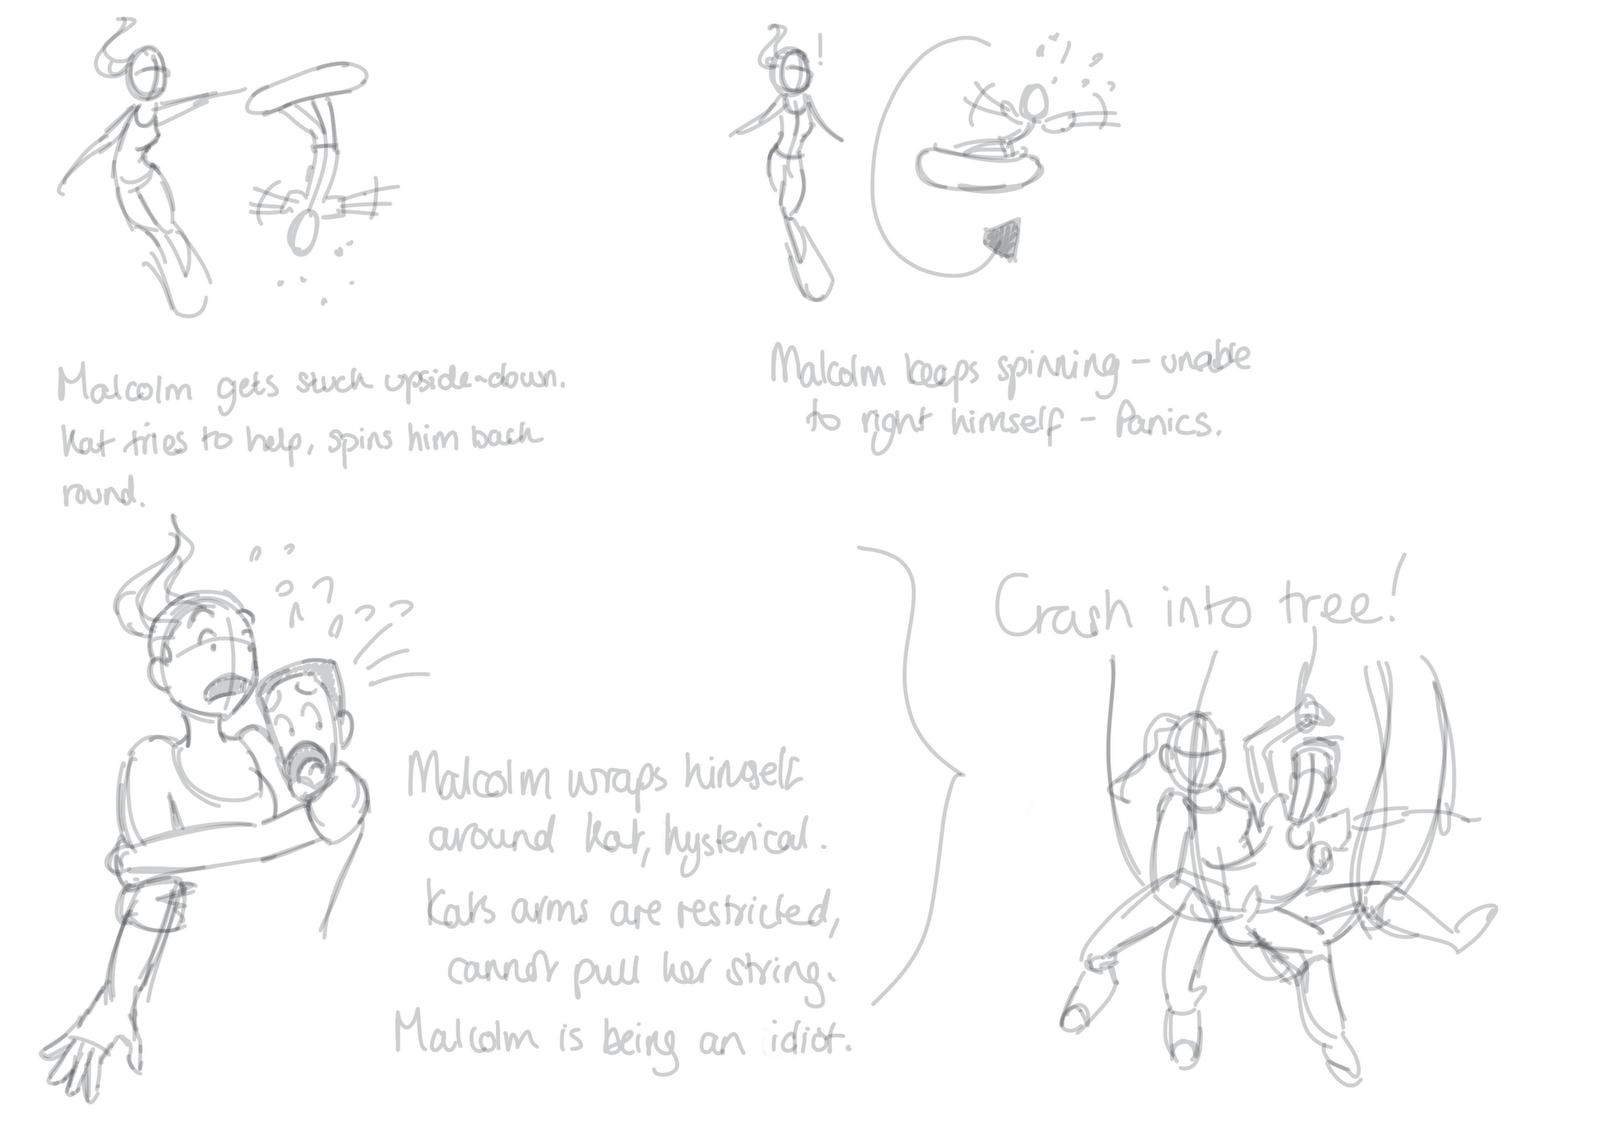 !
Malcolm gets stuck upside-down.
Kat tries to help, spins him back
round.
Malcolm keeps spinning - unable
to right himself - Panics.
Malcolm wraps himself
around Kat, hysterical.
Kats arms are restricted,
cannot pull her string.
Malcolm is being an idiot.
Crash into tree!